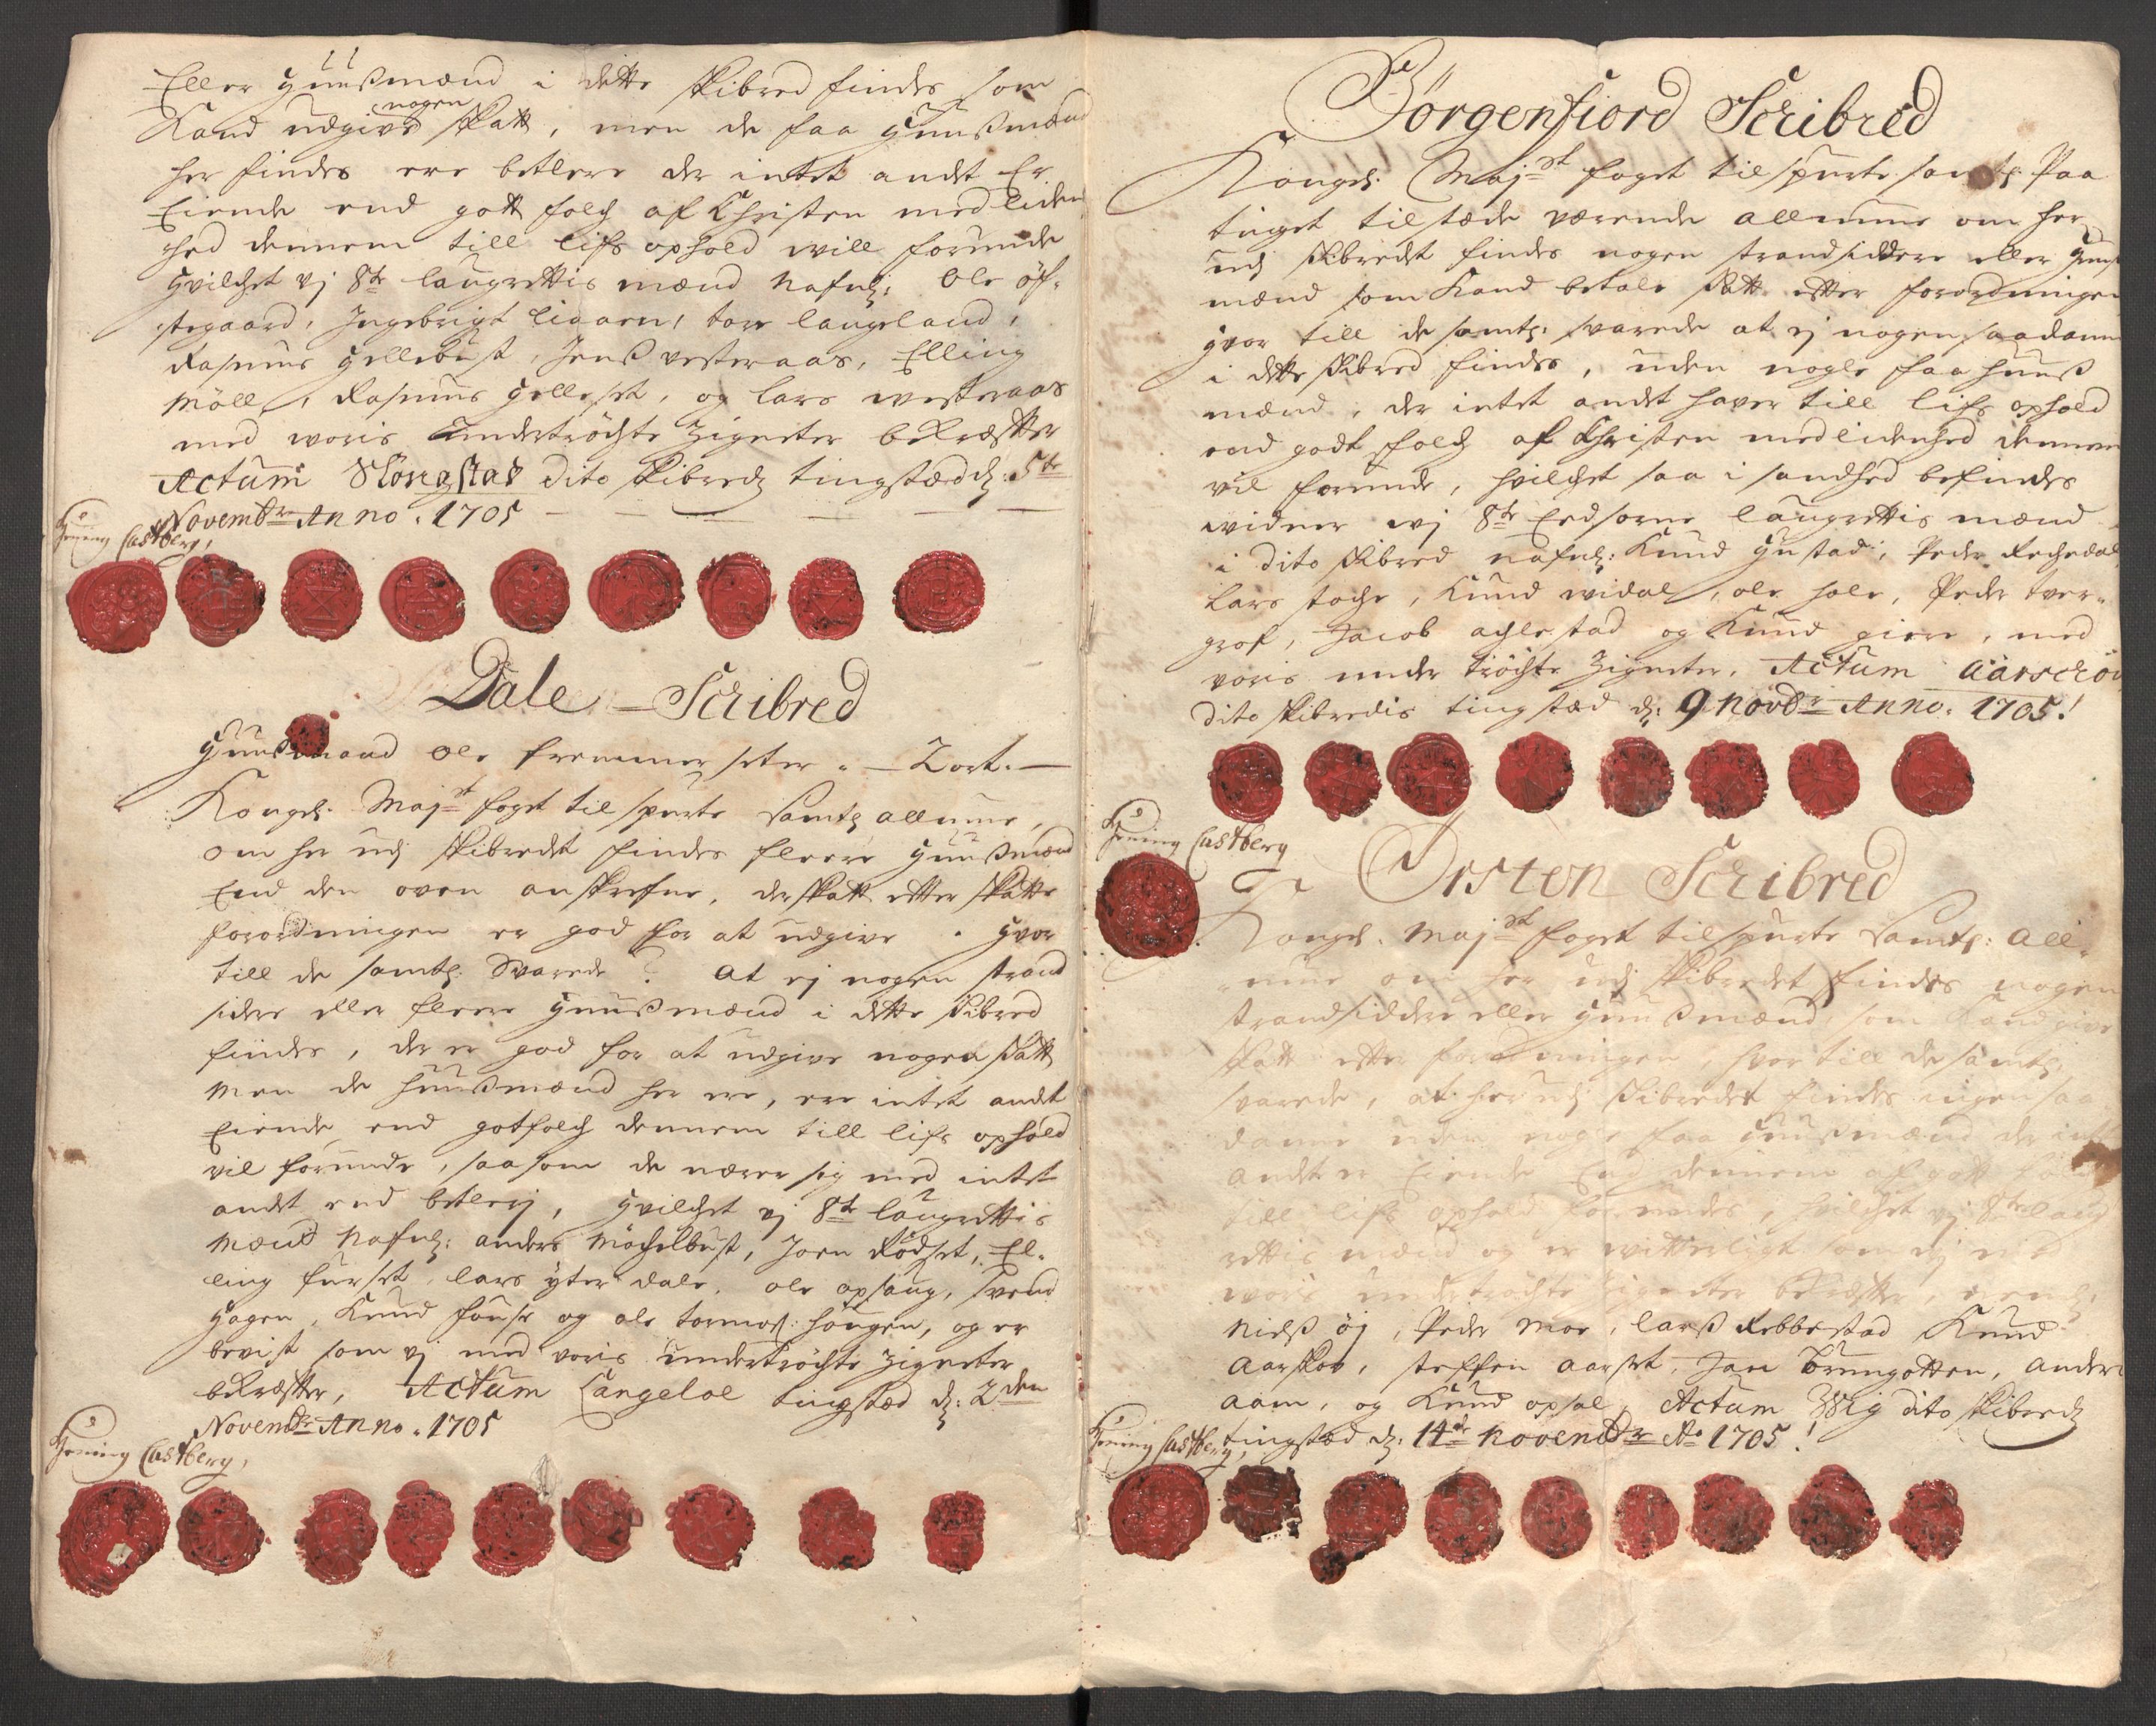 Eller Huußmænd i dette skibred findes som
Kand udgive nogen skatt, men de faa Huußmænd
her findes ere betlere der intet andt Er
Eiende end gott folch af Christen medliden
hed dennem till lifs ophold will forunde
Hvilchet vj 8te laugrettis mænd Nafnl: Ole
Ingebrigt Liaaen, tore langeland,
Rasmus Hellebust, Jenß vesteraas, Elling
Möll, Rasmus Gelleset, og lars westeraas
med woris undertröchte Zigneter bekræffter
Actum Slöngstad dito skibredz tingstæd d: 5te
Novembr Anno. 1705
Hening Castberg,
Dale Schibred
Huußmand Ole fremmersæter
Kongel. Majst foget tilspurte samtl allmue,
om her udj skibredet findes fleere Huußmænd
End den oven anskrefne, der skatt efter skatte
forordningen er god for at udgive. Hvor
till de samtl. Svarede? at ej nogen strand
sidere eller fleere Huußmænd i dette skibred
findes, der er god for at udgive nogen skatt
Men de huußmænd her ere, ere intet andt
Eiende end gotfolch dennem till lifs ophold
vil forunde, saasom de nærer sig med intet
andet end betlerj, Hvilchet vj 8te laugrettis
Mænd Nafnl: anders Möchelbust, Joen Rödset, El-
ling furset, lars yterdale, ole opsaug, svend
Hagen, Knud fouse og ole tormod: haugen, og er
bevist som vj med voris undertröchte Zigneter
bekræffter, Actum Langeloe tingstæd d: 2den
Novembr Anno. 1705
Hening Castberg,
Börgenfiord Schibred
Kongel. Majst foget tilspurte samtl. Paa
tinget tilstæde værende allmue om her
udj skibredet findes nogen strandsiddere eller Huus
mænd som Kand betale skatt efter forordningen
Hvor till de samtl: svarede at ej nogen saadanne
i dette skibred findes, uden nogle faa huuß
mænd, der intet andet haver till lifs ophold
end godt folch af Christen medlidenhed dennem
vil forunde, hvilchet saa i sandhed befindes
widner wj 8te Eedsorne laugrettis mænd
i dito skibred nafnl: Knud Hustad, Peder Rechedal
Lars stoche, Knud vidal, ole hole, Peder tver-
grof, Jacob achlestad og Knud giere, med
voris under tröchte Zigneter. Actum Aarschou
dito skibredis tingstæd d: 9 Novbr Anno. 1705!
Hening Castberg
Örsten Schibred
Kongel. Majst foget tilspurte samtl: all-
mue om her udj skibredet findes nogen
strandsiddere eller Huußmænd, som Kand give
skatt efter forordningen, hvor till de samtl.
svarede, at her udj skibredet findes ingen saa
danne uden nogle faa Huußmænd der intet
andet er Eiende End dennem af gott folch
till lifs ophold forundes, hvilchet vj 8te laug
rettis mænd og er witterligt som vj med
woris undertröchte Zigneter bekræffter, nemlig
Nielß öj, Peder Moe, larß Rebbestad Knud
Aarskov, steffen aarset, Jon Brungotten, anders
aam, og Knud opsal, Actum Wiig dito skibredz
tingstæd d: 14de Novembr Ao 1705!
Hening Castberg,